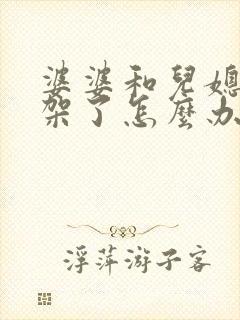 婆婆和兒媳
架了怎麼办
浮萍游子客